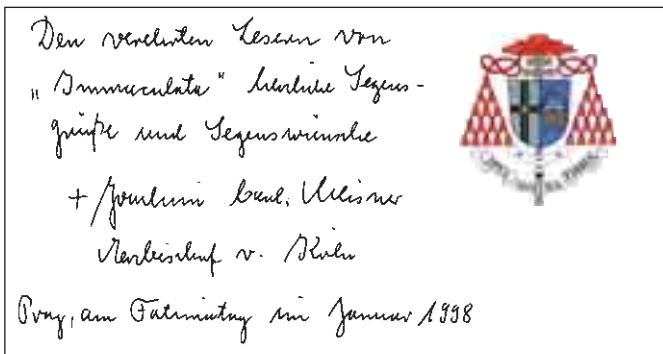 Den verehrten Lesern von
„Immaculata“ herzliche Segens-
grüße und Segenswünsche
+ Joachim Card. Meisner
Erzbischof v. Köln
Prag, am Fatimatag im Januar 1998